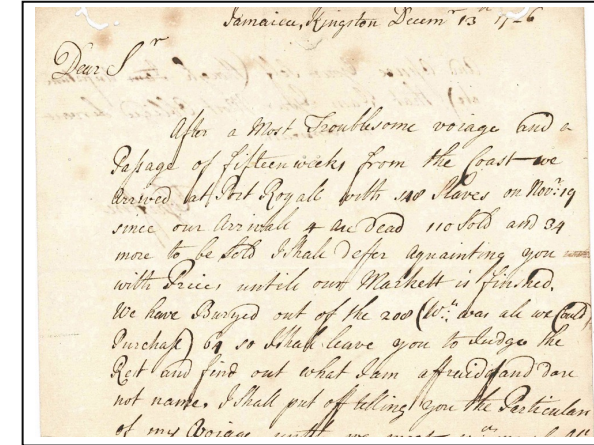 Jamaica, Kingston Decemr 13th 1726
Dear Sr
After a Most Troublesome voiage and a
Passage of fifteen weeks from the Coast we
Arrived at Port Royall with 148 Slaves on Novr: 19
since our Arrivall 4 are Dead 110 Sold and 34
more to be Sold I Shall Deffer aquainting you
with Prices untill our Markett is finshed.
We have Buryed out of the 208 (Wch. was all we Could
Purchase) 64 so I Shall leave you to Judge the
Rest and find out what I am affraid and Dare
not name. I Shall put off telling you the Perticulars
of my Voiage until we meet